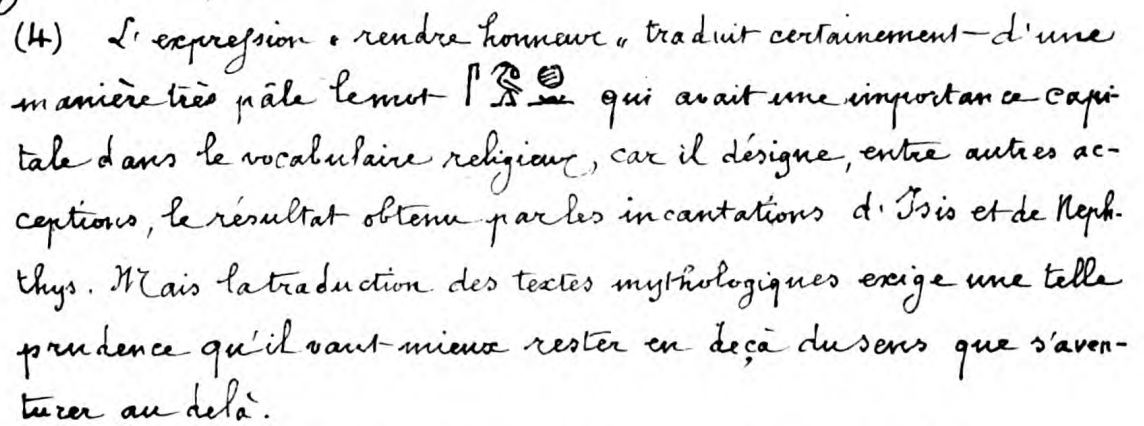 (4) L'expression « rendre honneur » traduit certainement d'une
manière très pâle le mot 𓋴𓅜𓐍 qui avait une importance capi-
tale dans le vocabulaire religieux, car il désigne, entre autres ac-
ceptions, le résultat obtenu par les incantations d'Isis et de Neph-
thys. Mais la traduction des textes mythologiques exige une telle
prudence qu'il vaut mieux rester en deçà du sens que s'aven-
turer au delà.